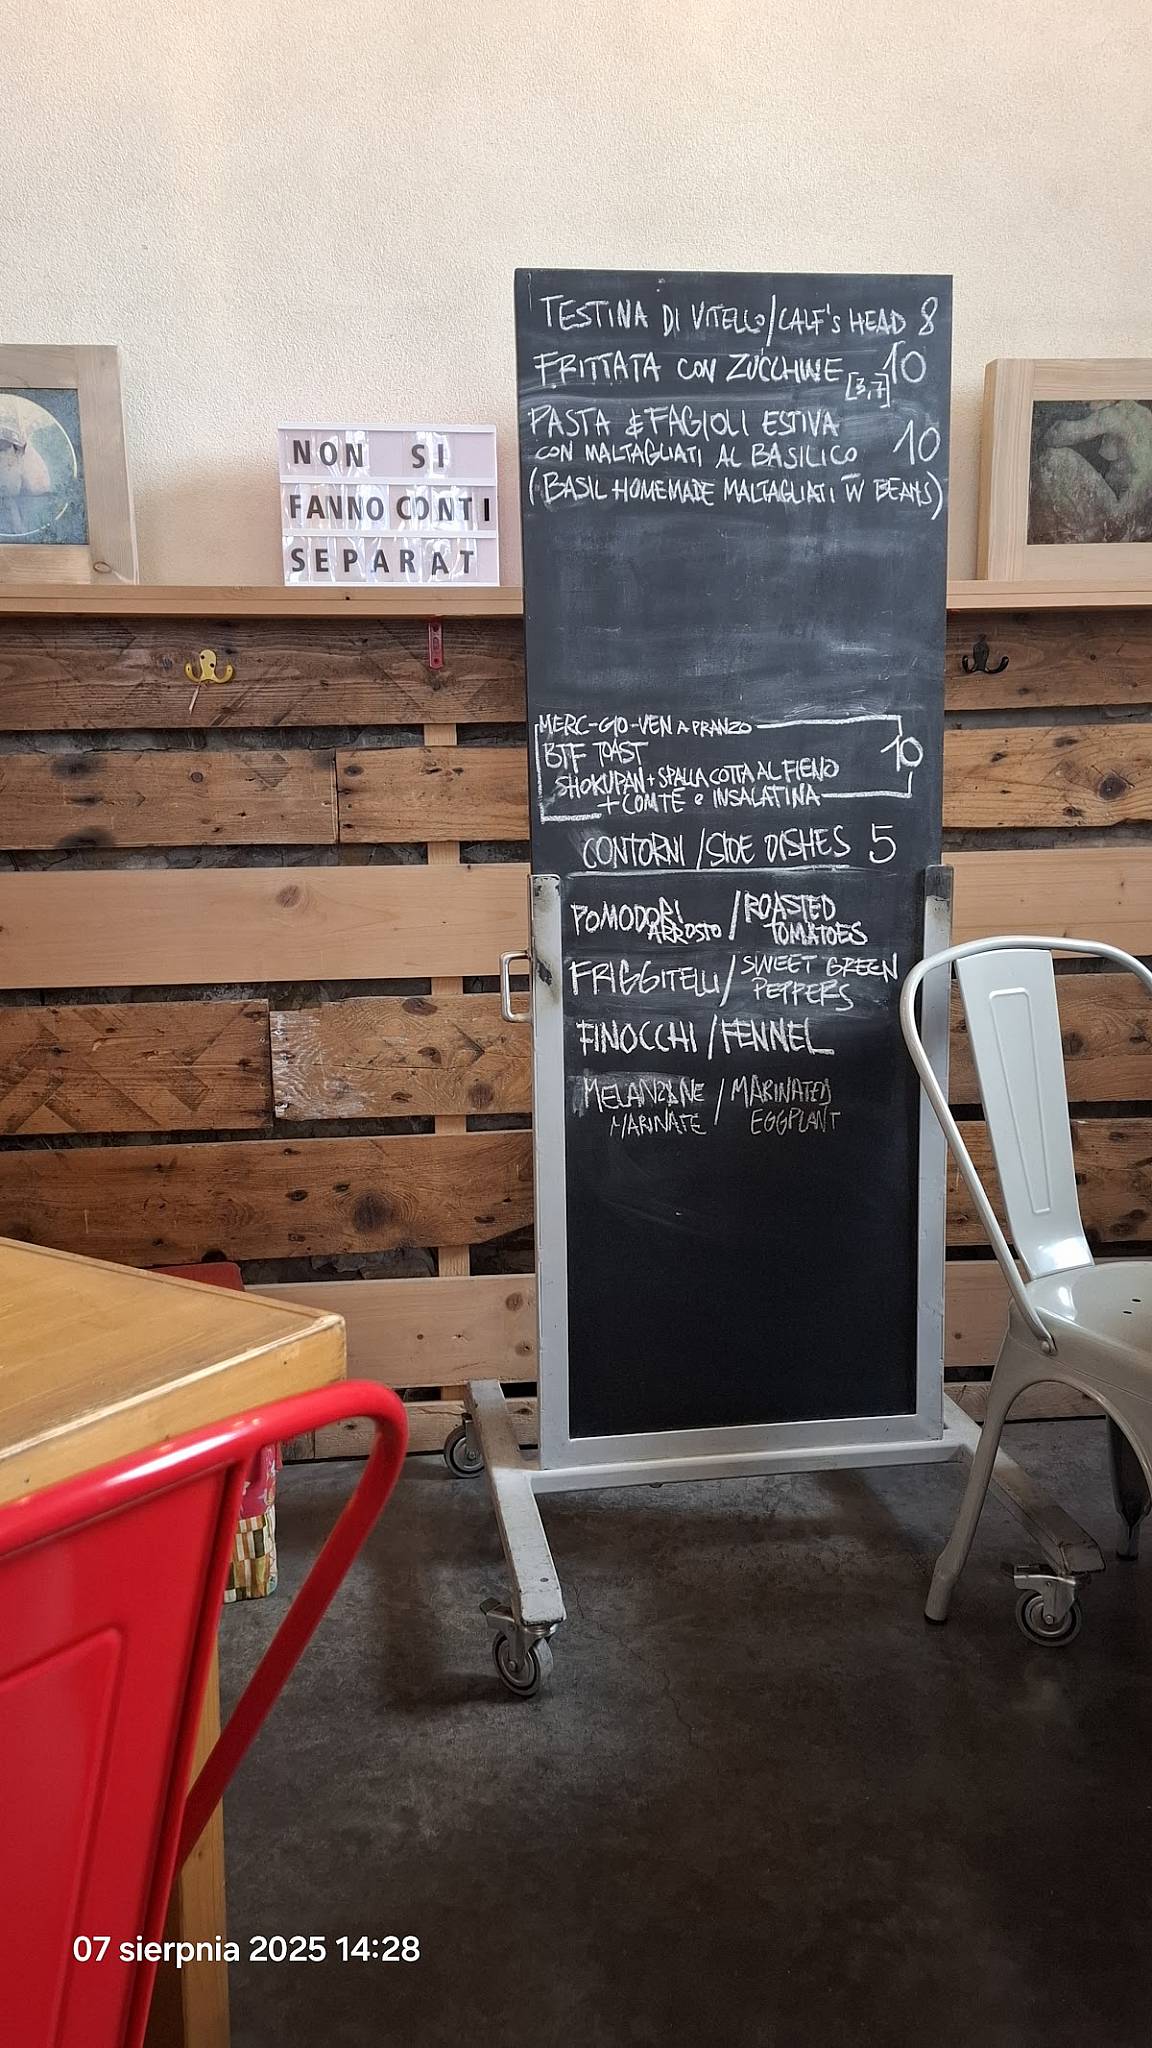 TESTINA DI VITELLO/CALF'S HEAD 8
FRITTATA CON ZUCCHINE [3,7] 10
PASTA & FAGIOLI ESTIVA
CON MALTAGLIATI AL BASILICO 10
(BASIL HOMEMADE MALTAGLIATI W BEANS)
NON SI
FANNO CONTI
SEPARAT
MERC-GIO-VEN A PRANZO
BTF TOAST 10
SHOKUPAN + SPALLA COTTA AL FIENO
+ COMTÈ e INSALATINA
CONTORNI / SIDE DISHES 5
POMODORI ARROSTO / ROASTED TOMATOES
FRIGGITELLI / SWEET GREEN PEPPERS
FINOCCHI / FENNEL
MELANZANE MARINATE / MARINATED EGGPLANT
07 sierpnia 2025 14:28